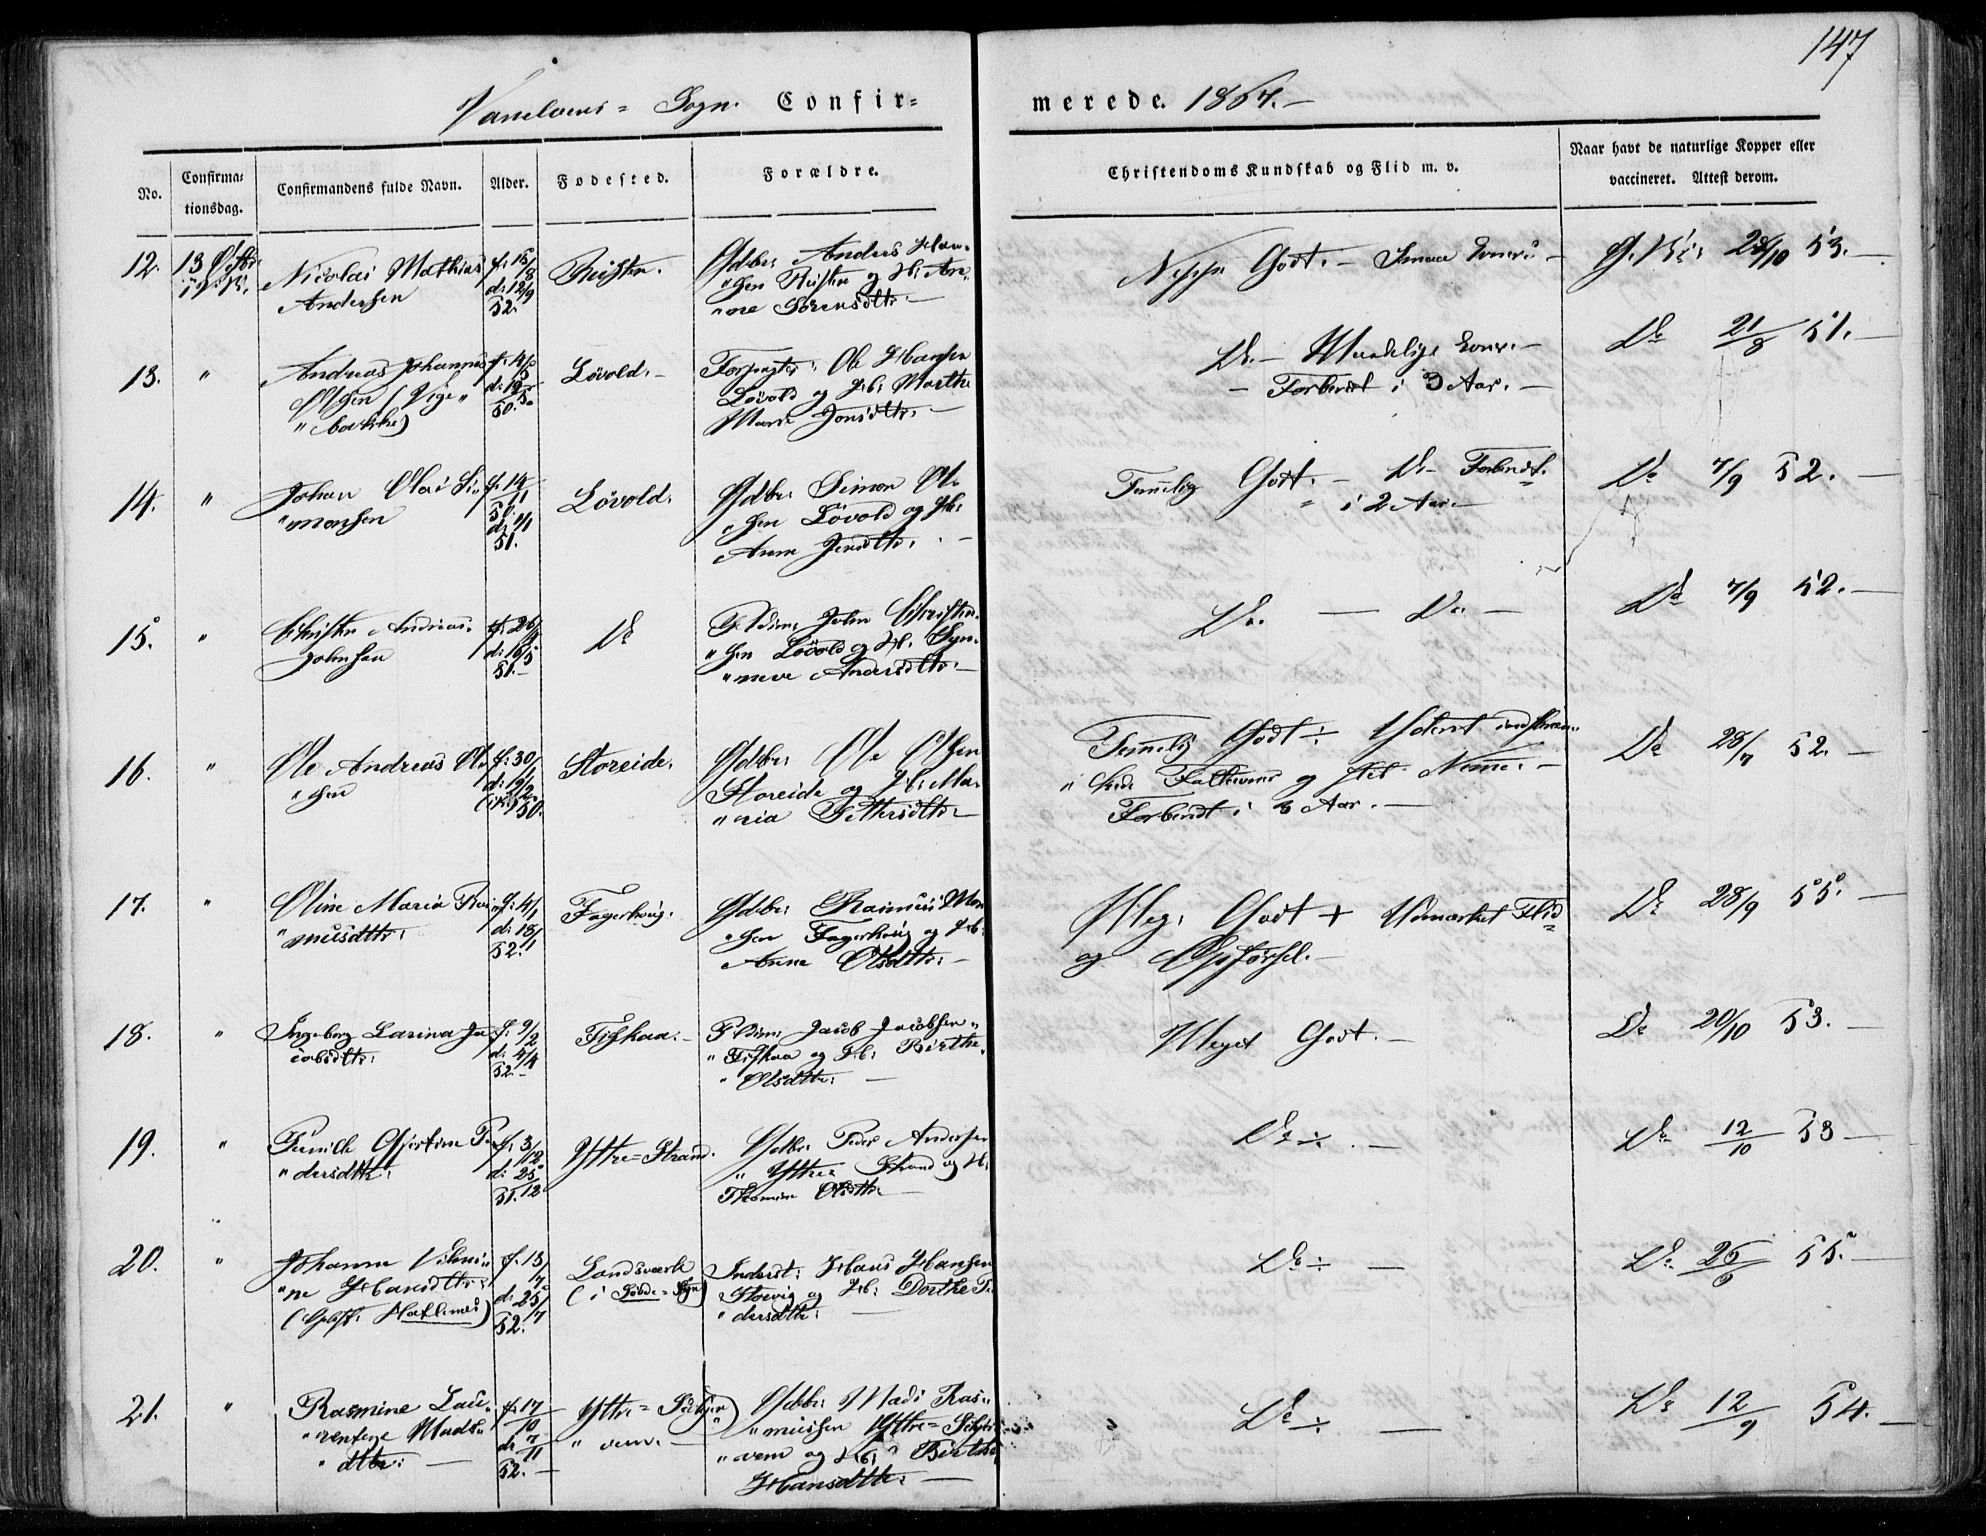 147
Vanelvens = Sogn. Confir=
merede. 1867. –
No.
Confirma=
tionsdag.
Confirmandens fulde Navn.
Alder.
Fødested.
Forældre.
Christendoms Kundskab og Flid m. v.
Naar havt de naturlige Kopper eller
vaccineret. Attest derom.
12. 13 Octbr
Nicolai Mathias
Andersen
f: 16/8
d: 12/9
52.
Gdbr: Anders Han-
"sen og H: An-
"ne Sörensdtr: –
Neppe Godt. – Smaa Evner –
28/10 53. –
13. "
Andreas Johannes
Olsen (Vige"
"bakke)
50.
Lövold. –
Forpagter: Ole Hansen
Lövold og Hb: Marthe
Marie Jonsdtr: –
Do. – Maadelige Evner. –
– Forberedt i 3 Aar. –
Do 21/8 51. –
14. "
Johan Olai Si"
"monsen
f: 14/11
50.
51.
Lövold.
Gdbr: Simon Ol-
"sen Lövold og Hb:
Anne Jensdtr: –
Temmelig Godt. – Do – Forberedt
i 2 Aar. –
Do 7/9 52. –
15. "
Andreas
Johnsen
d: 16/5
51. –
Do
John Christen-
"sen Lövold og Hb: Syn-
"neve Andersdtr: –
Do. – Do. –
Do 7/9 52. –
16. "
Ole Andreas Ol-
"sen
f: 30/
50.
Storeide.
Gdbr: Ole Olsen
Storeide og Hb: Ma-
"ria Pettersdtr –
Temmelig Godt ÷
og slet Nemme. –
Forberedt i 3 Aar. –
Do 28/7 52. –
17. "
Oline Maria Ras"
"musdtr:
f: 4/1
d: 18/1
52.
Fagerhoug.
Gdbr: Rasmus Mon
"sen Fagerhoug og Hb:
Anne Olsdtr: –
Meg: Godt + Udmærket Flid
og Opförsel. –
Do 28/9 55. –
18. "
Ingeborg Larina Ja-
cobsdtr:
f: 9/2
d: 4/4
52. –
Fiskaa. –
Jacob Jacobsen"
"Fiskaa og Hb: Birthe
"Olsdtr: –
Meget Godt. –
Do 20/10 53. –
19. "
Pernille Gjertine Pe-
"dersdtr:
f: 3/12
d: 25
51. 12
Ytre=Strand.
Gdbr: Peder Andersen
"Ytre Strand og H:
Thomine Olsdtr –
Do ÷ . –
Do 12/10 53 –
20. "
Johanne Vilmi"
"ne Hansdtr:
f. 13/7
d: 25/7
52.
Landsværk
(i Sövde=Sogn)
Inderst: Hans Hansen
og Hb: Dorthe Pe
"dersdtr: –
Do ÷ –
Do. 25 55. –
21. "
Rasmine Lau"
"rentze Mads"
"dtr: –
f: 17/10
d: 7/11
52. –
Ytre=
Gdbr: Mads Ras"
"mussen Ytre=
"vem og Hb: Birthe
Hansdtr: –
Do ÷ –
Do 12/9 54. –